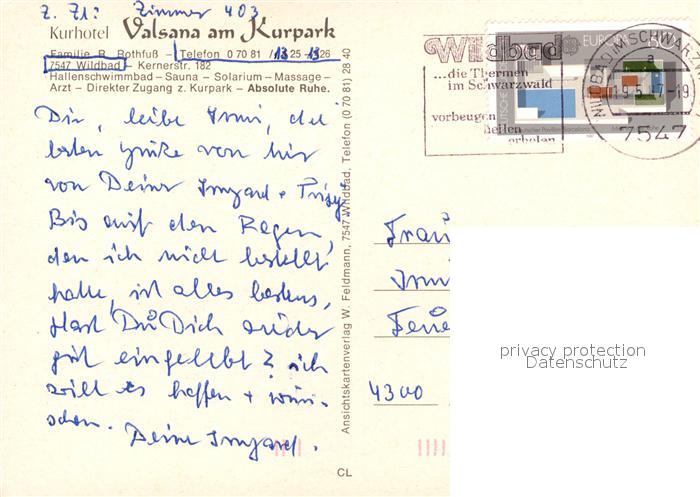 z. Zt: Zimmer 403
Kurhotel Valsana am Kurpark
Familie R. Rothfuß – Telefon 0 70 81 /
7547 Wildbad – Kernerstr. 182
Hallenschwimmbad – Sauna – Solarium – Massage –
Arzt – Direkter Zugang z. Kurpark – Absolute Ruhe.
Dir, liebe Irmi, die
besten Grüße von hier
von Deiner Irmgard +
Bis auf den Regen,
den ich nicht bestellt
hatte, ist alles bestens,
Hast Du Dich wieder
gut eingelebt? ich
will es hoffen + wün-
schen.
Deine Irmgard.
Ansichtskartenverlag W. Feldmann, 7547 Wildbad, Telefon (0 70 81) 28 40
CL
Wildbad
...die Thermen
im Schwarzwald
vorbeugen
heilen
erholen
EUROPA
WILDBAD IM SCHWARZW
7547
Frau
Irm
4300
privacy protection
Datenschutz